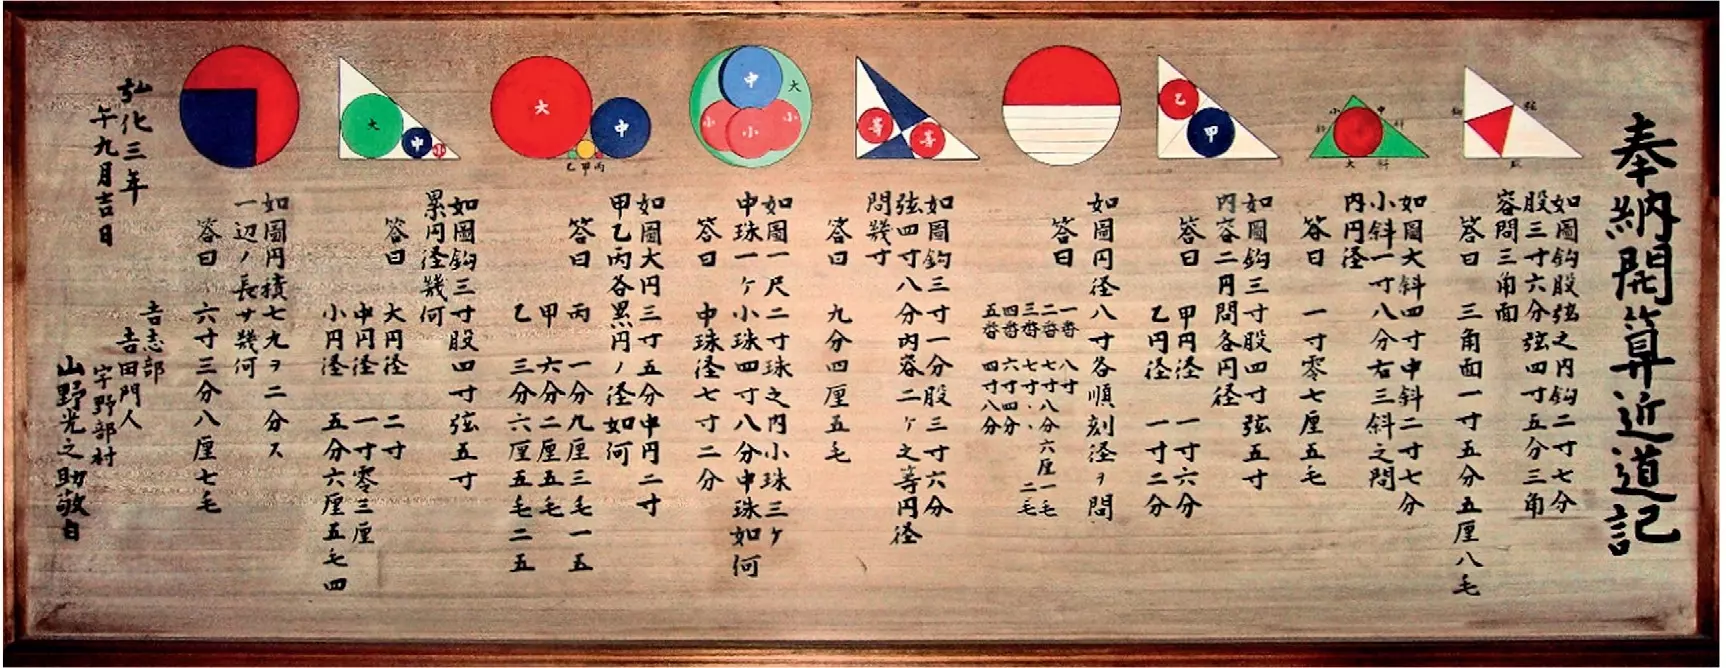 奉納開算近道記
如圖鈎股弦之内鈎二寸七分
股三寸六分弦四寸五分三角
容問三角面
答曰 三角面一寸五分五厘八毛
如圖大斜四寸中斜二寸七分
小斜一寸八分右三斜之問
内円径
答曰 一寸零七厘五毛
如圖鈎三寸股四寸弦五寸
内容二円問各円径
答曰 甲円径 一寸六分
乙円径 一寸二分
如圖円径八寸各順刻径ヲ問
答曰
一番 八寸
二番 七寸八分六厘一毛
三番 七寸
四番 六寸四分 二毛
五番 四寸八分
如圖鈎三寸一分股三寸六分
弦四寸八分内容二ヶ之等円径
問幾寸
答曰 九分四厘五毛
如圖一尺二寸球之内小珠三ヶ
中珠一ヶ小珠四寸八分中珠如何
答曰 中珠径七寸二分
如圖大円三寸五分中円二寸
甲乙丙各累円ノ径如何
答曰 丙 一分九厘三毛一五
甲 六分二厘五毛
乙 三分六厘五毛二五
如圖鈎三寸股四寸弦五寸
累円径幾何
答曰 大円径 二寸
中円径 一寸零三厘
小円径 五分六厘五毛四
如圖円積七九ヲ二分ス
一辺ノ長サ幾何
答曰 六寸三分八厘七毛
弘化三年
午九月吉日
吉志部
吉田門人
字野部村
山野光之助敬白
小
中
大
斜
斜
斜
鈎
弦
股
乙
甲
等
等
中
大
小
小
小
大
中
乙
甲
丙
大
中
小